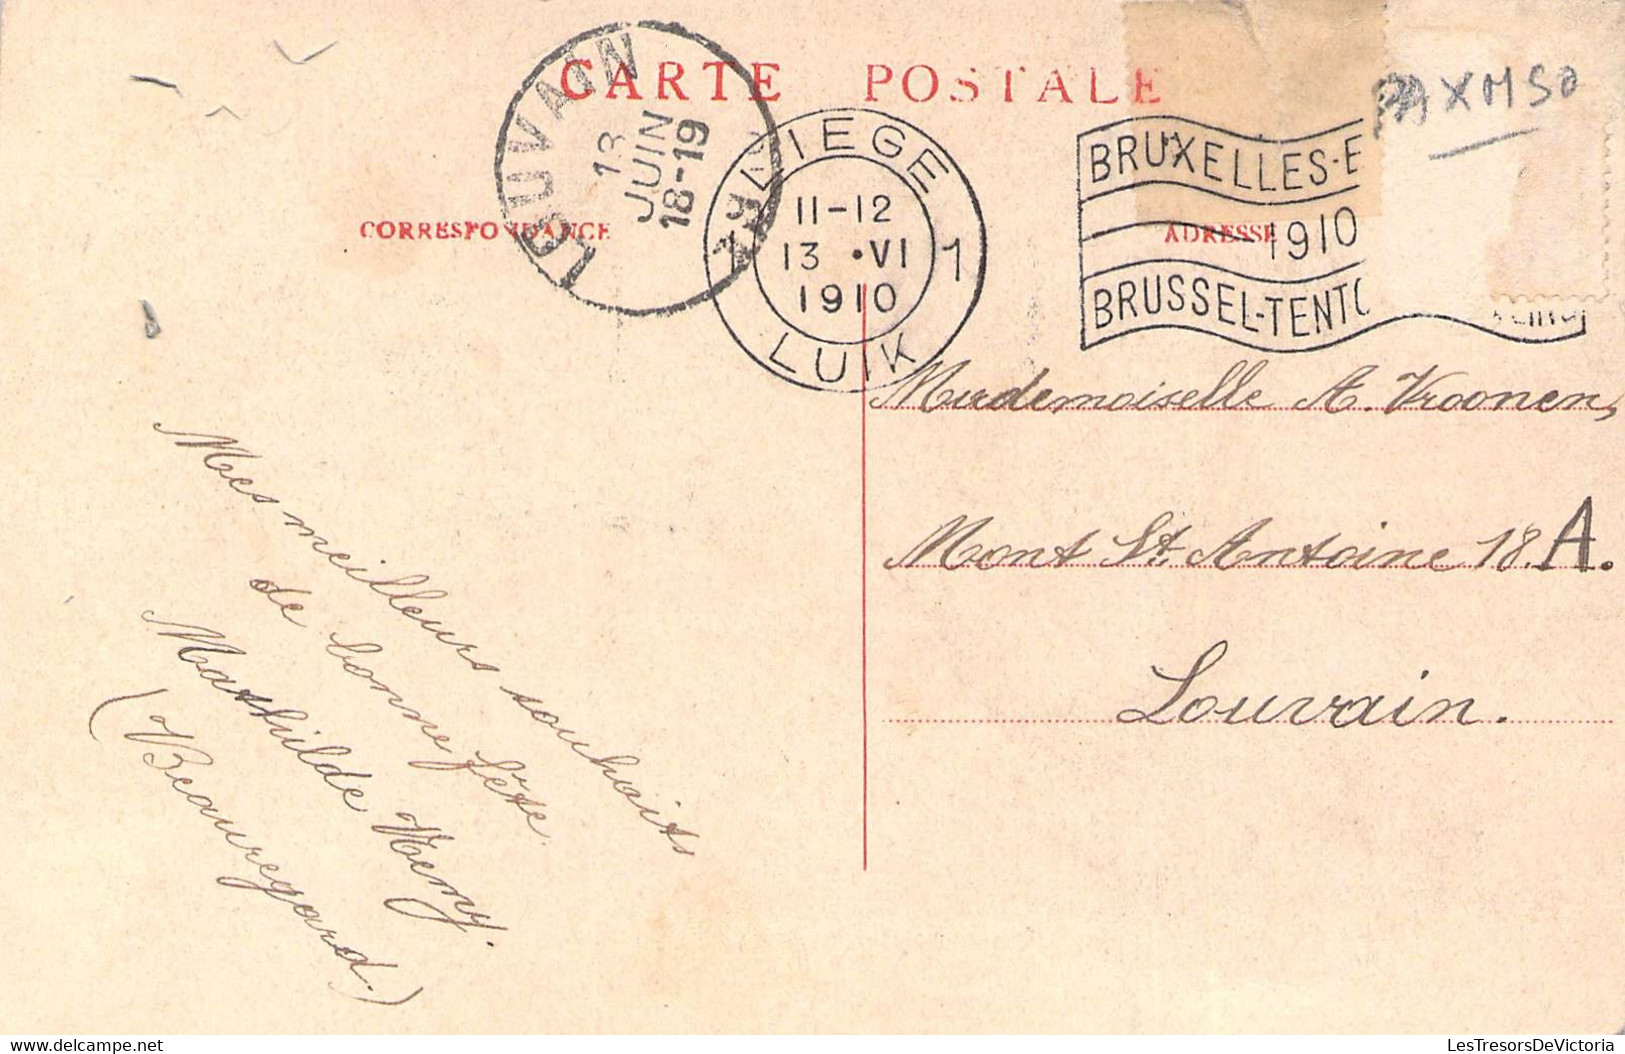 CARTE POSTALE
LOUVAIN
13
JUIN
18-19
LIEGE
11-12
13 • VI
1910
1 1
LUIK
BRUXELLES-E
1910
BRUSSEL-TENTO
XM50
CORRESPONDANCE
ADRESSE
Mademoiselle A. Vroonen,
Mont St. Antoine 18.A.
Louvain.
Mes meilleurs souhaits
de bonne fête.
Mathilde Remy.
(Beauregard.)
www.delcampe.net
LesTresorsDeVictoria